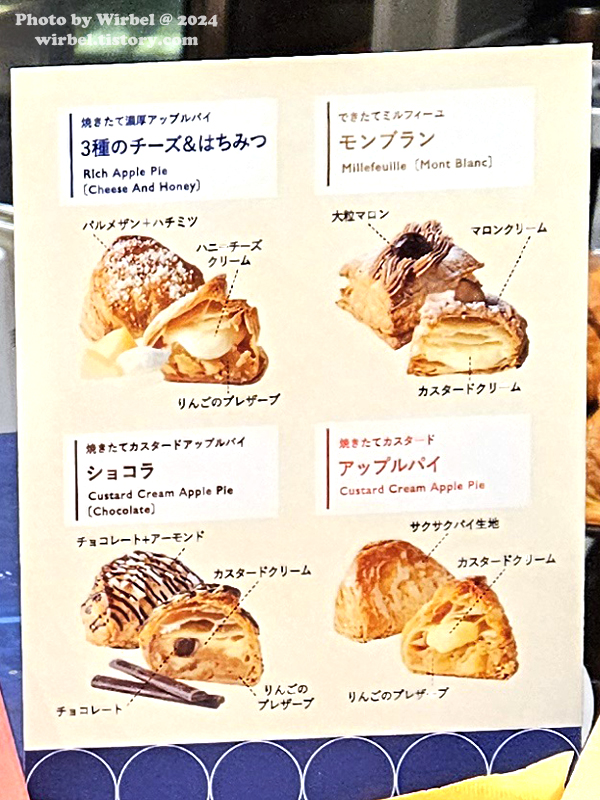 Photo by Wirbel @ 2024
wirbel.tistory.com
焼きたて濃厚アップルパイ
3種のチーズ&はちみつ
Rich Apple Pie
〔Cheese And Honey〕
パルメザン+ハチミツ
ハニーチーズ
クリーム
りんごのプレザーブ
できたてミルフィーユ
モンブラン
Millefeuille〔Mont Blanc〕
大粒マロン
マロンクリーム
カスタードクリーム
焼きたてカスタードアップルパイ
ショコラ
Custard Cream Apple Pie
〔Chocolate〕
チョコレート+アーモンド
カスタードクリーム
チョコレート
りんごの
プレザーブ
焼きたてカスタード
アップルパイ
Custard Cream Apple Pie
サクサクパイ生地
カスタードクリーム
りんごのプレザーブ